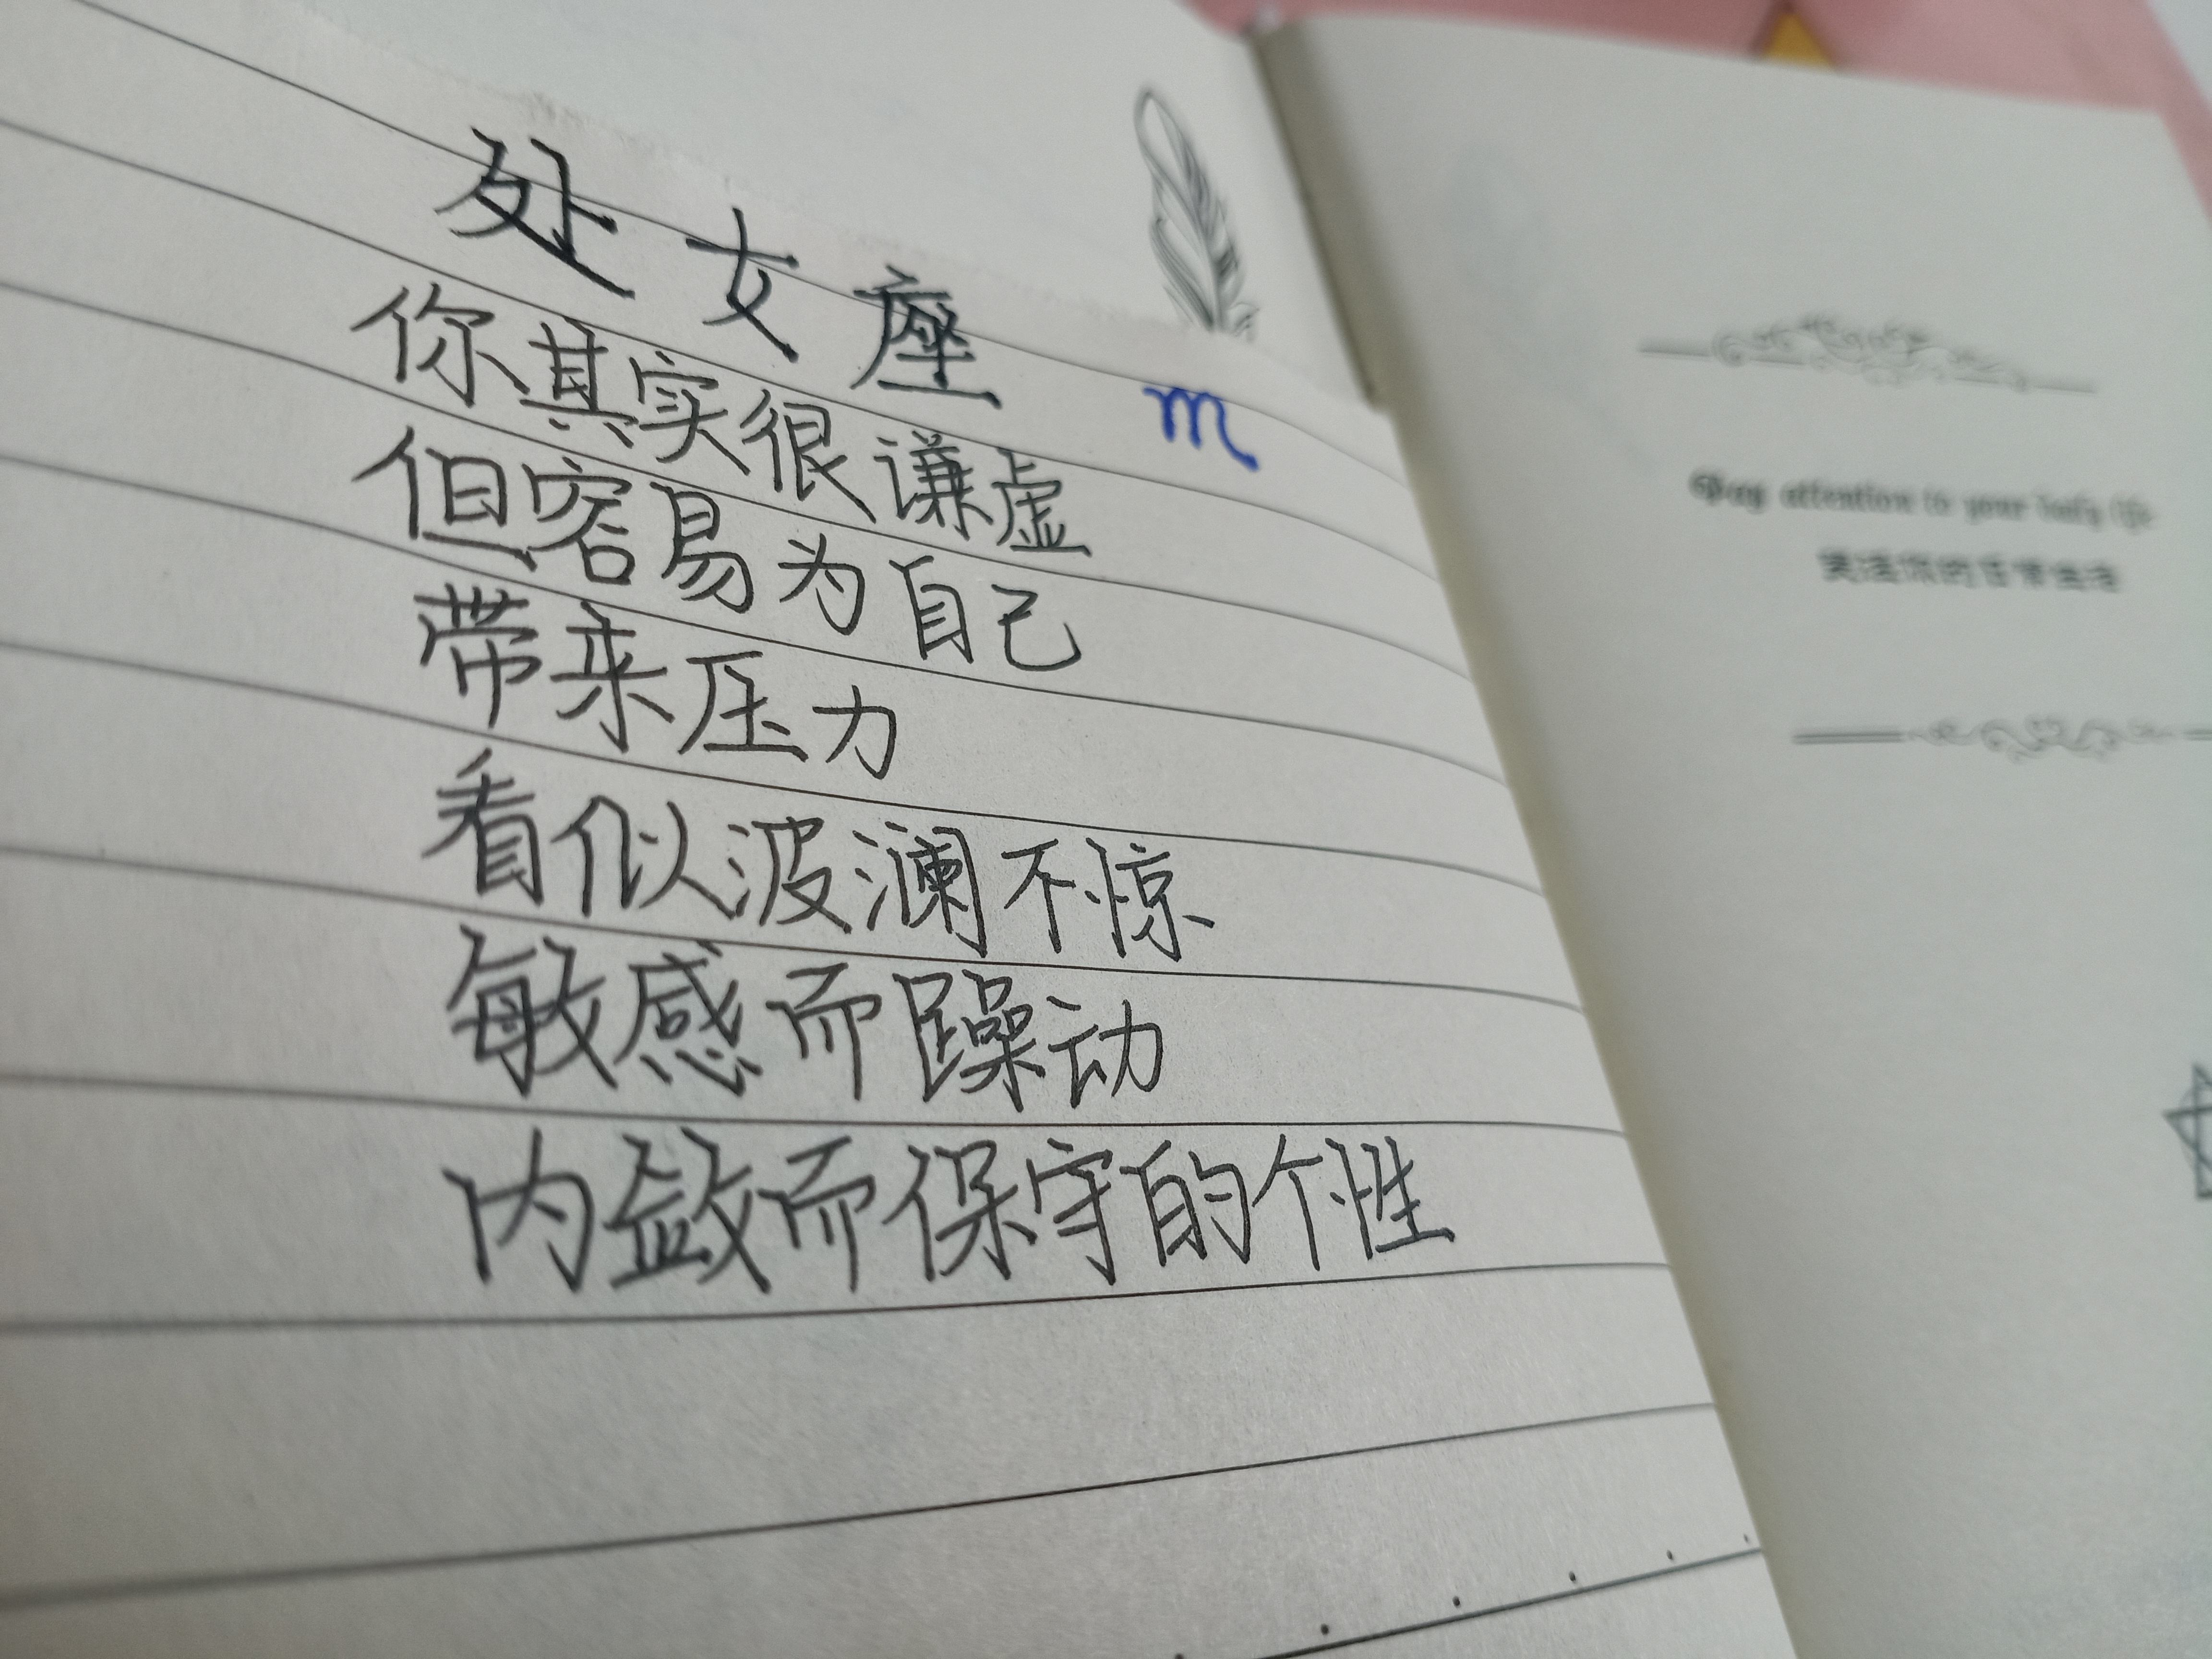 处女座
m
你其实很谦虚
但容易为自己
带来压力
看似波澜不惊
敏感而躁动
内敛而保守的个性
Pay attention to your daily life
关注你的日常生活